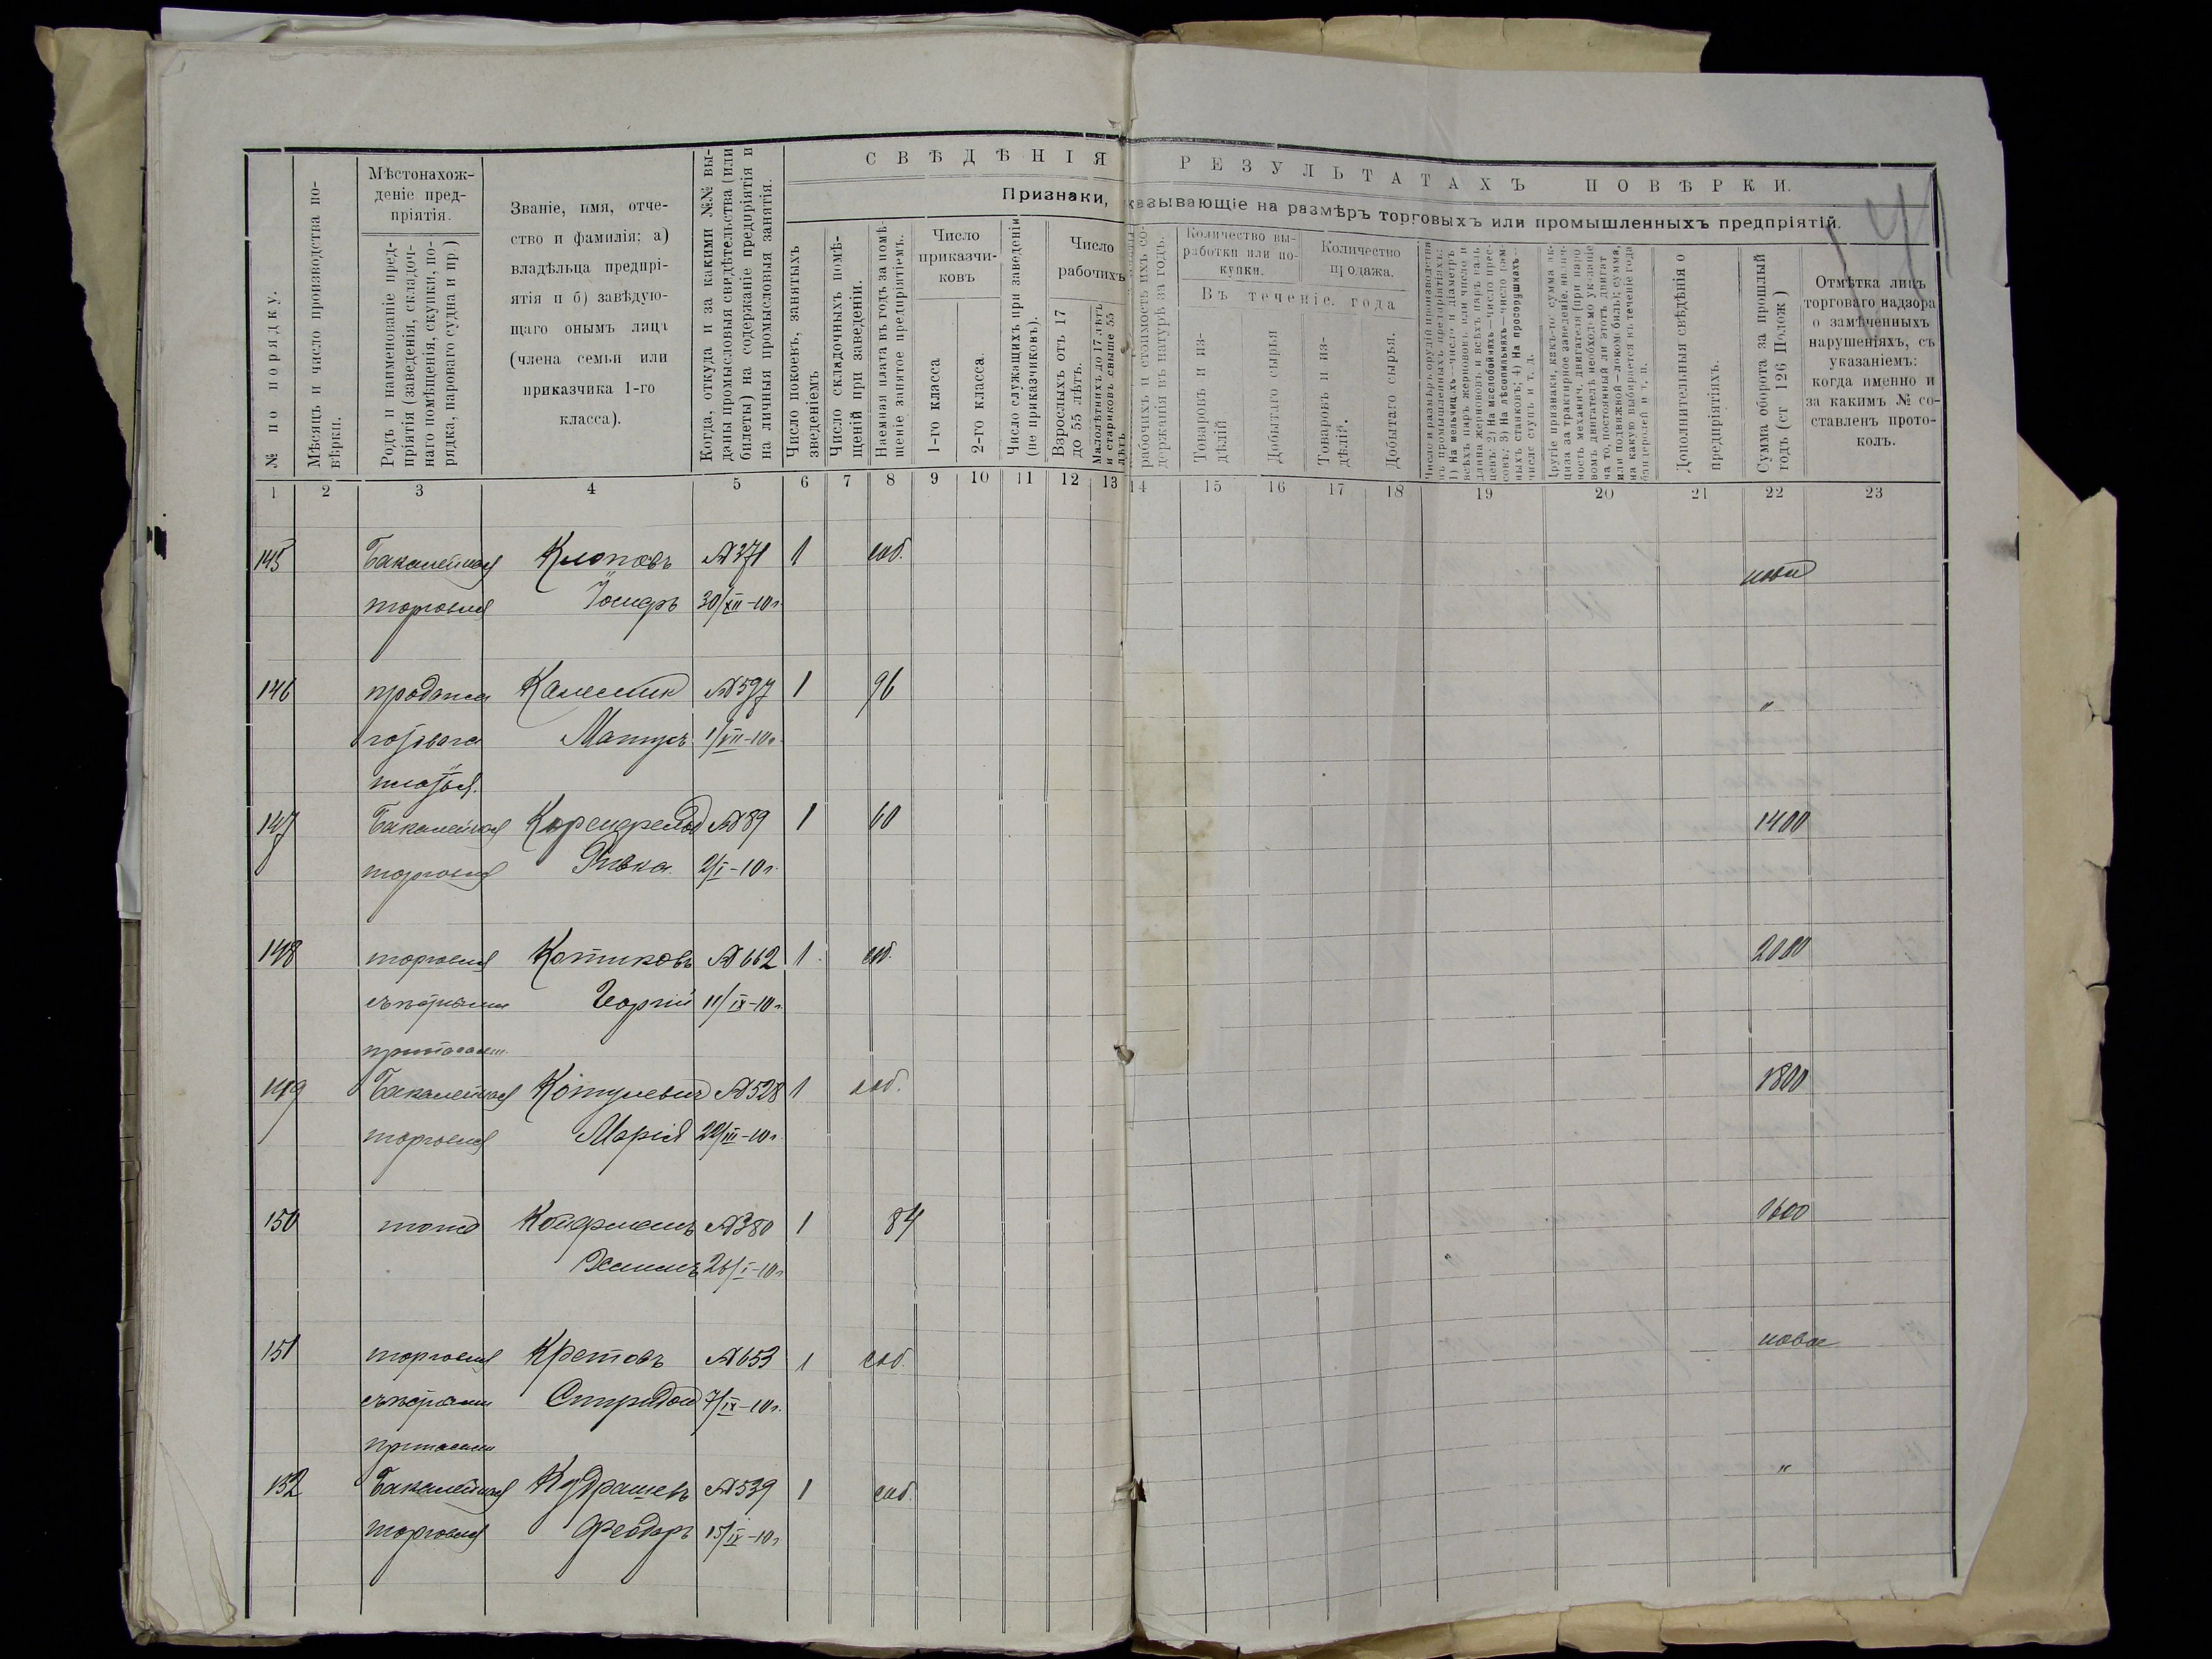 СВѢДѢНІЯ РЕЗУЛЬТАТАХЪ ПОВѢРКИ.
Признаки, казывающіе на размѣръ торговыхъ или промышленныхъ предпріятій.
№ по порядку.
Мѣсяцъ и число производства по-
вѣрки.
Мѣстонахож-
деніе пред-
пріятія.
Родъ и наименованіе пред-
пріятія (заведенія, складоч-
наго помѣщенія, скупки, по-
рядка, пароваго судна и пр.)
Званіе, имя, отче-
ство и фамилія: а)
владѣльца предпрі-
ятія и б) завѣдую-
щаго онымъ лица
(члена семьи или
приказчика 1-го
класса).
Когда, откуда и за какими №№ вы-
даны промысловыя свидѣтельства (или
билеты) на содержаніе предпріятія и
на личныя промысловыя занятія.
Число покоевъ, занятыхъ
зведеніемъ
Число складочныхъ помѣ-
щеній при заведеніи.
Наемная плата въ годъ за помѣ-
щеніе занятое предпріятіемъ.
Число
приказчи-
ковъ
1-го класса
2-го класса.
Число служащихъ при заведеніи
(не приказчиковъ).
Число
рабочихъ
Взрослыхъ отъ 17
до 55 лѣтъ.
Малолѣтнихъ до 17 лѣтъ
и стариковъ свыше 55
лѣтъ
рабочихъ и стоимость ихъ со-
держанія въ натурѣ за годъ.
Количество вы-
работки или по-
купки.
Количество
продажа.
Въ теченіе года
Товаровъ и из-
дѣлій
Добытаго сырья
Товаровъ и из-
дѣлій.
Добытаго сырья.
Число и размѣръ орудій производства
въ промышленныхъ предпріятіяхъ:
1) На мельницахъ—число и діаметръ
всѣхъ паръ жернововъ или число и
длина жерновов. и всѣхъ паръ валь
цевъ: 2) На маслобойняхъ—число прес-
совъ; 3) На лѣсопильняхъ—число рам-
ныхъ станковъ; 4) На просорушкахъ—
число ступъ и т. д.
Другіе признаки, какъ-то: сумма ак-
циза за трактирное заведеніе,
ность механич. двигателя (при паро
вомъ двигателѣ необходимо указаніе
на то, постоянный ли этотъ двигат
или подвижной—локомобиль); сумма,
на какую выбирается въ теченіе года
бандеролей и т. п.
Дополнительныя свѣдѣнія о
предпріятіяхъ.
Сумма оборота за прошлый
годъ (ст 126 Полож )
Отмѣтка лицъ
торговаго надзора
о замѣченныхъ
нарушеніяхъ, съ
указаніемъ:
когда именно и
за какимъ № со-
ставленъ прото-
колъ.
1 2 3 4 5 6 7 8 9 10 11 12 13 14 15 16 17 18 19 20 21 22 23
145 Бакалейная Клоповъ №371 1 соб.
торговля 30/XII-10г.
146 продажа №597 1 96 "
готоваго 1/VII-10г.
платья.
147 Бакалейная №89 1 60 1400
торговля Ривка 2/I-10г.
148 торговля Котиковъ №662 1 соб. 2000
съѣстными Георгій 11/IX-10г.
149 Бакалейная Котулевичъ №528 1 соб. 1800
торговля Марія 29/III-10г.
150 тоже Кауфманъ №380 1 84 1600
26/I-10г
151 торговля Кретовъ №653 1 соб. новое
съѣстными Спиридонъ 7/IX-10г.
припасами
152 Бакалейная Кудрашевъ №539 1 соб. "
торговля Феодоръ 15/IV-10г